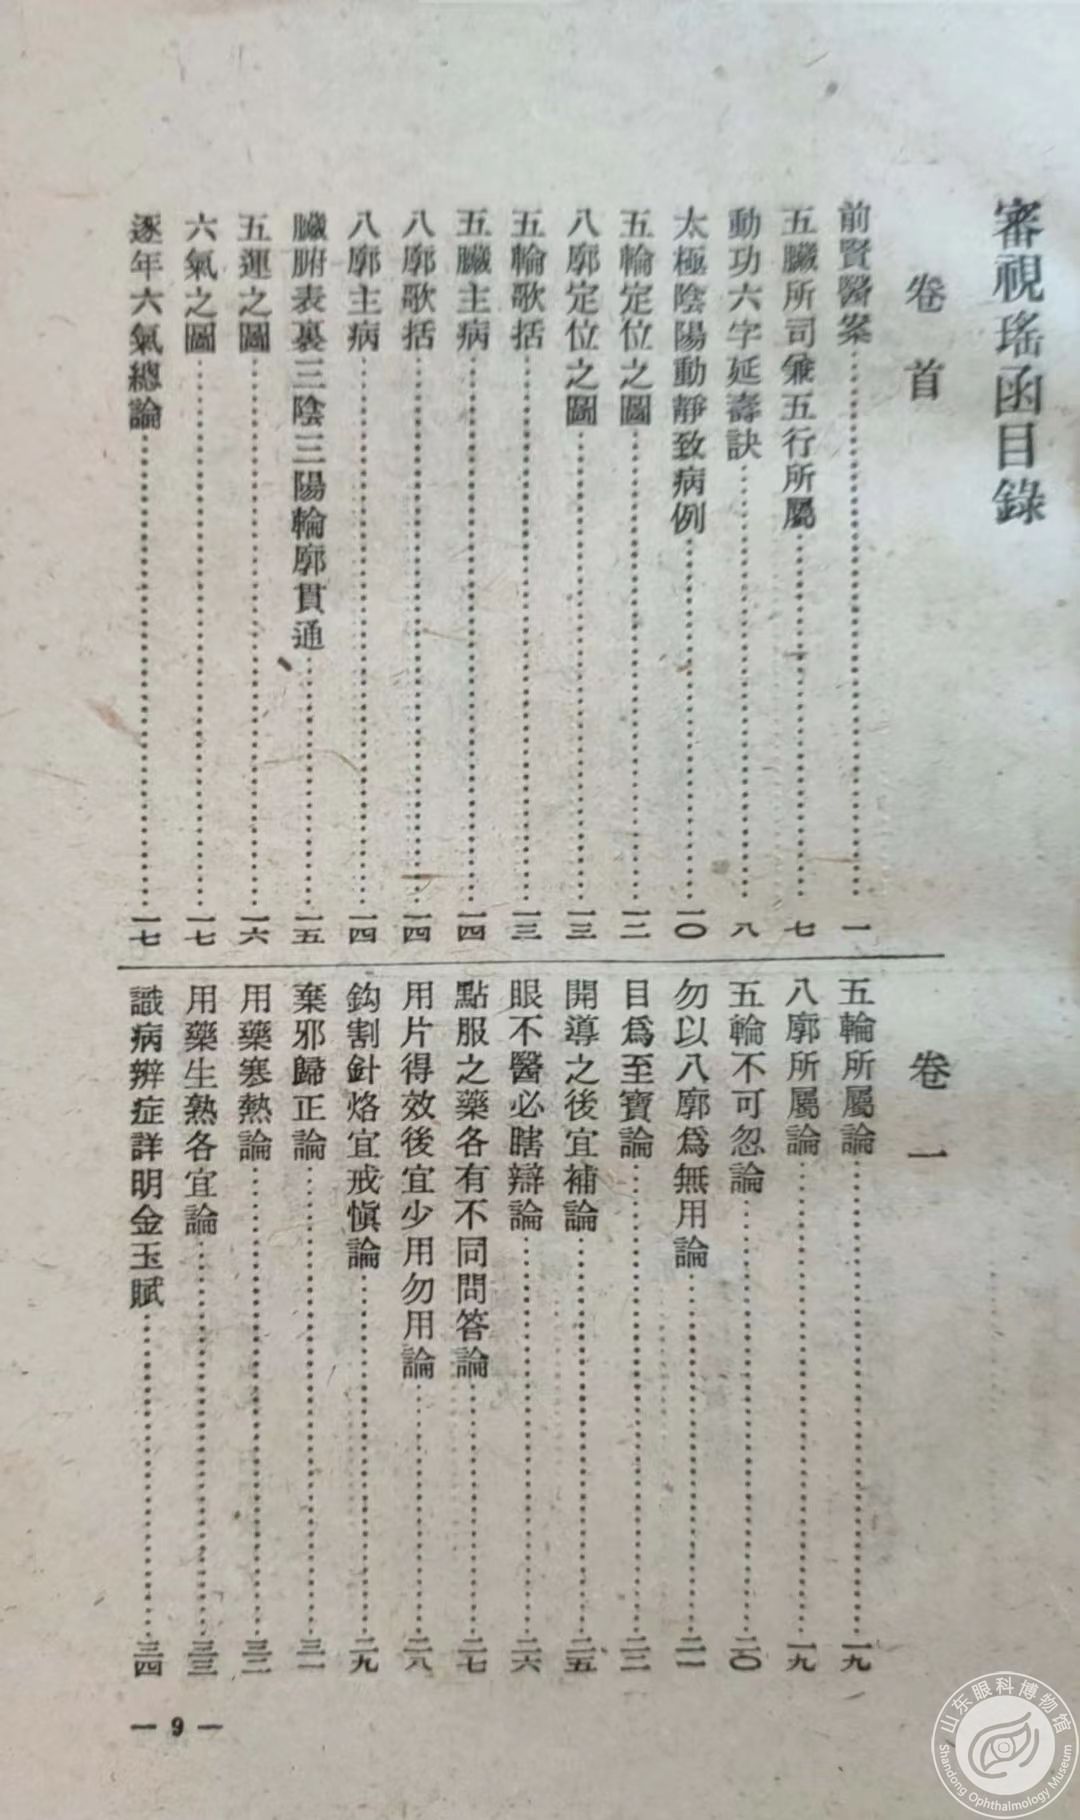 審視瑤函目錄
卷首
前賢醫案……一
五臟所司兼五行所屬……七
動功六字延壽訣……八
太極陰陽動靜致病例……一〇
五輪定位之圖……一二
八廓定位之圖……一三
五輪歌括……一三
五臟主病……一四
八廓歌括……一四
八廓主病……一四
臟腑表裏三陰三陽輪廓貫通……一五
五運之圖……一六
六氣之圖……一七
逐年六氣總論……一七
卷一
五輪所屬論……一九
八廓所屬論……一九
五輪不可忽論……二〇
勿以八廓爲無用論……二一
目爲至寶論……二二
開導之後宜補論……二五
眼不醫必瞎辯論……二六
點服之藥各有不同問答論……二七
用片得效後宜少用勿用論……二八
鈎割針烙宜戒慎論……二九
棄邪歸正論……三一
用藥寒熱論……三二
用藥生熟各宜論……三三
識病辨症詳明金玉賦……三四
— 9 —
山东眼科博物馆
Shandong Ophthalmology Museum